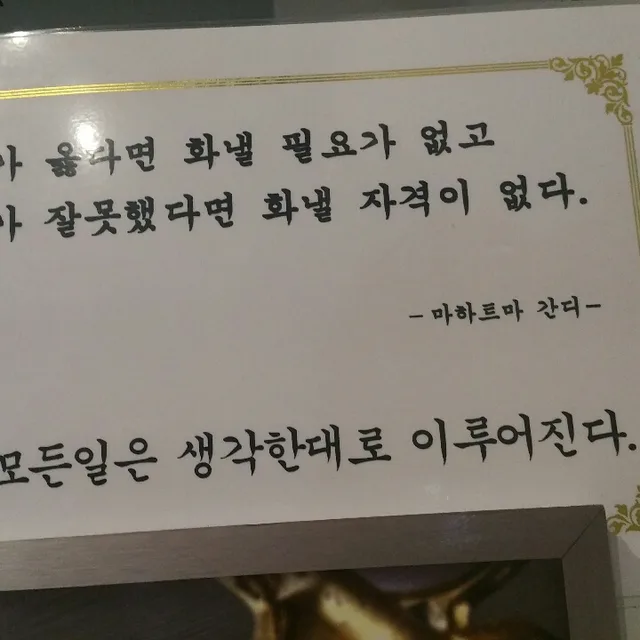 옳다면 화낼 필요가 없고
잘못했다면 화낼 자격이 없다.
-마하트마 간디-
모든일은 생각한대로 이루어진다.